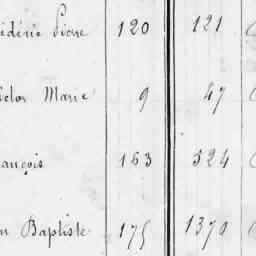 édéric Pierre 120 121
ictor Marie 9 47
ançois 163 324
n Baptiste 175 1370